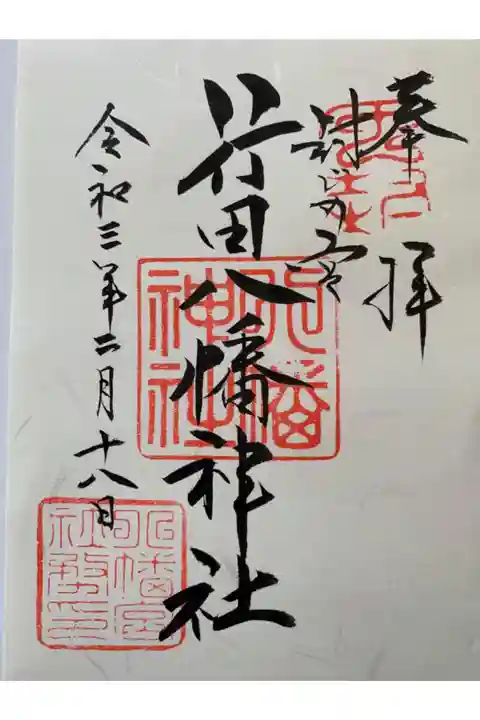 奉拝
封じの宮
行田八幡神社
令和三年二月十八日
八幡神社